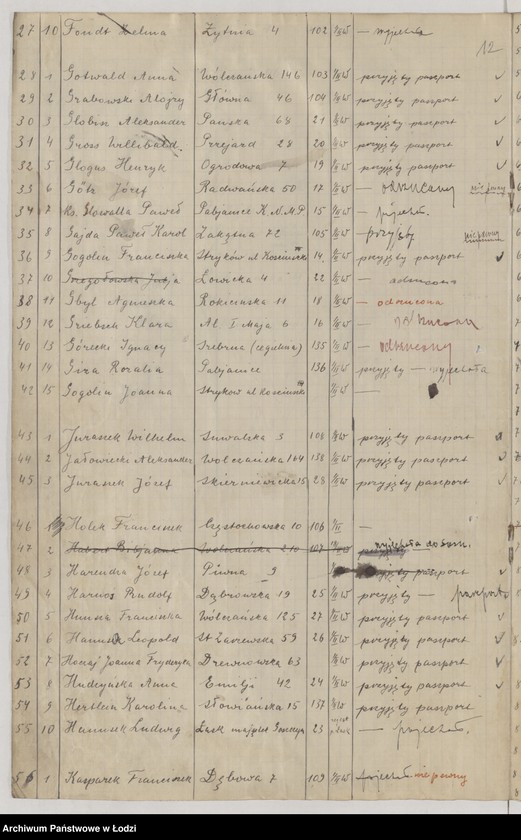 27 10 Fondt Selma Żytnia 4 102 — wyjechała
12
28 1 Gotwald Anna Wólczańska 146 103 przyjęty paszport ✓
29 2 Grabowski Alojzy Główna 46 104 przyjęty paszport ✓
30 3 Globin Aleksander Pańska 64 21 przyjęty paszport ✓
31 4 Gross Willibald Przejazd 28 20 przyjęty paszport ✓
32 5 Glogus Henryk Ogrodowa 7 19 przyjęty paszport ✓
33 6 Götz Józef Radwańska 50 17 — odrzucony niepewny
34 7 ks. Paweł Pabjanice K.N.M.P. 15 —
35 8 Gajda Paweł Karol Zakątna 72 105 — przyjęty niepewny
36 9 Gogolin Franciszka Stryków ul. Kościuszki 14 przyjęty paszport ✓
37 10 Łowicka 4 22 — odrzucona
38 11 Gbyl Agnieszka Rokicińska 11 18 — odrzucona
39 12 Griebsch Klara Al. I Maja 6 16 — odrzucony
40 13 Górecki Ignacy Srebrna (cegielnia) 135 — odrzucony
41 14 Gira Rozalja Pabjanice 136 przyjęty — wyjechała
42 15 Gogolin Joanna Stryków ul. Kościuszki —
43 1 Juraszek Wilhelm Suwalska 3 108 przyjęty paszport
44 2 Jałowiecki Aleksander Wólczańska 164 138 przyjęty paszport ✓
45 3 Juraszek Józef Skierniewicka 15 28 przyjęty paszport ✓
46 Franciszek Częstochowska 10 106 —
47 2 Wólczańska 210 107 wyjechała do
48 3 Harendra Józef Piwna 9 przyjęty paszport ✓
49 4 Harnos Rudolf Dąbrowska 19 25 przyjęty — paszport
50 5 Franciszka Wólczańska 125 27 przyjęty paszport ✓
51 6 Leopold St. Zarzewska 59 26 przyjęty paszport ✓
52 7 Joanna Fryderyka Drewnowska 63 przyjęty paszport ✓
53 8 Hudzyńska Anna Emilji 42 24 przyjęty paszport ✓
54 9 Herslein Karolina Słowiańska 15 137 przyjęty paszport
55 10 Hanusek Ludwig Łask majątek 23 —
56 1 Kasparek Franciszek Dębowa 7 109 niepewny
Archiwum Państwowe w Łodzi